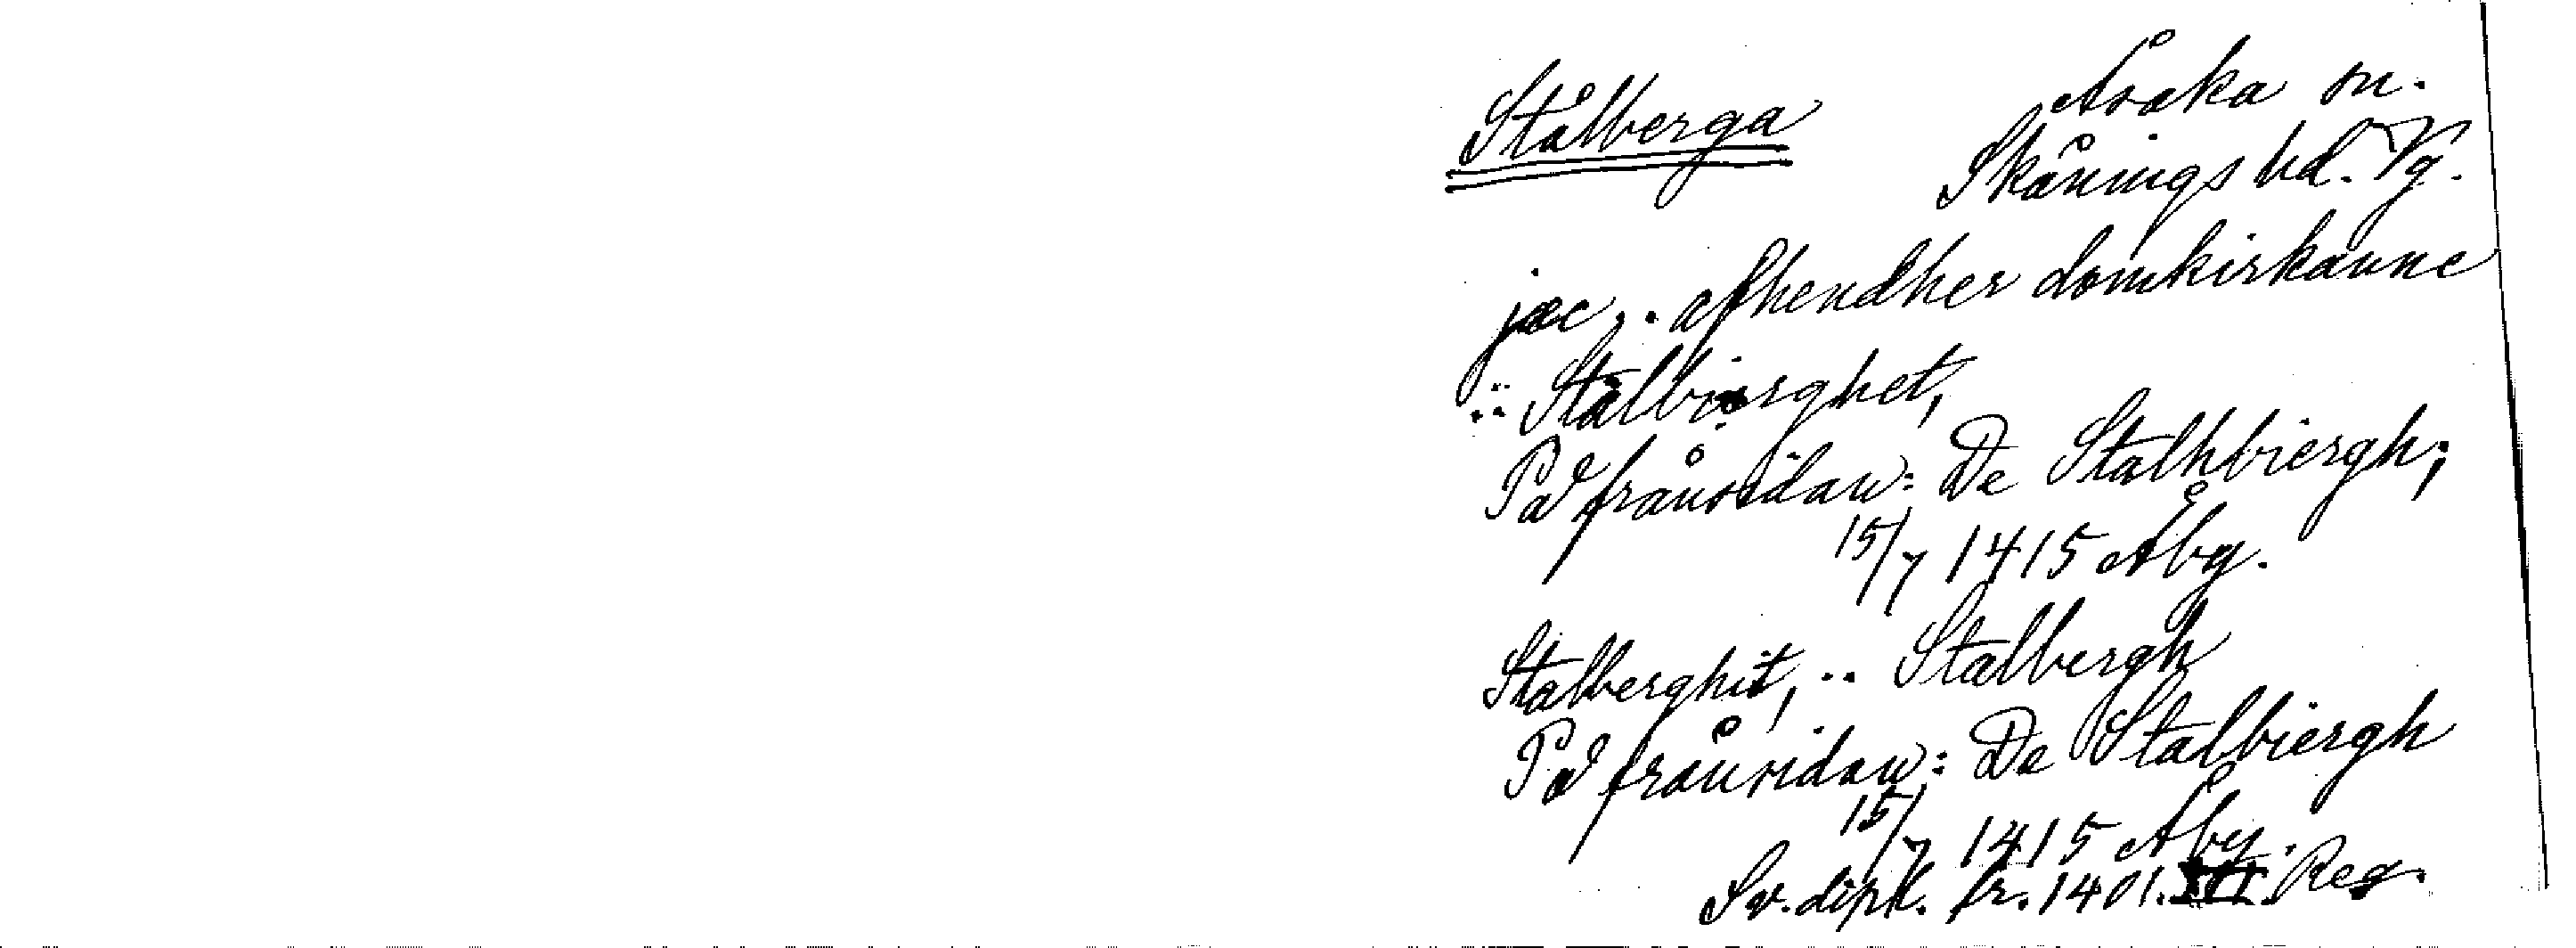 Stålberga
Åsaka sn.
Skånings hd. Vg.
jæc .. afhendher domkirkänne
.. Stalbiærghet,
På frånsidan: De Stalhbiergh;
15/7 1415 Åby.
Stalberghit, .. Stalbergh
På frånsidan: De Stalbiergh
15/7 1415 Åby.
Sv. dipl. fr. 1401. Reg.